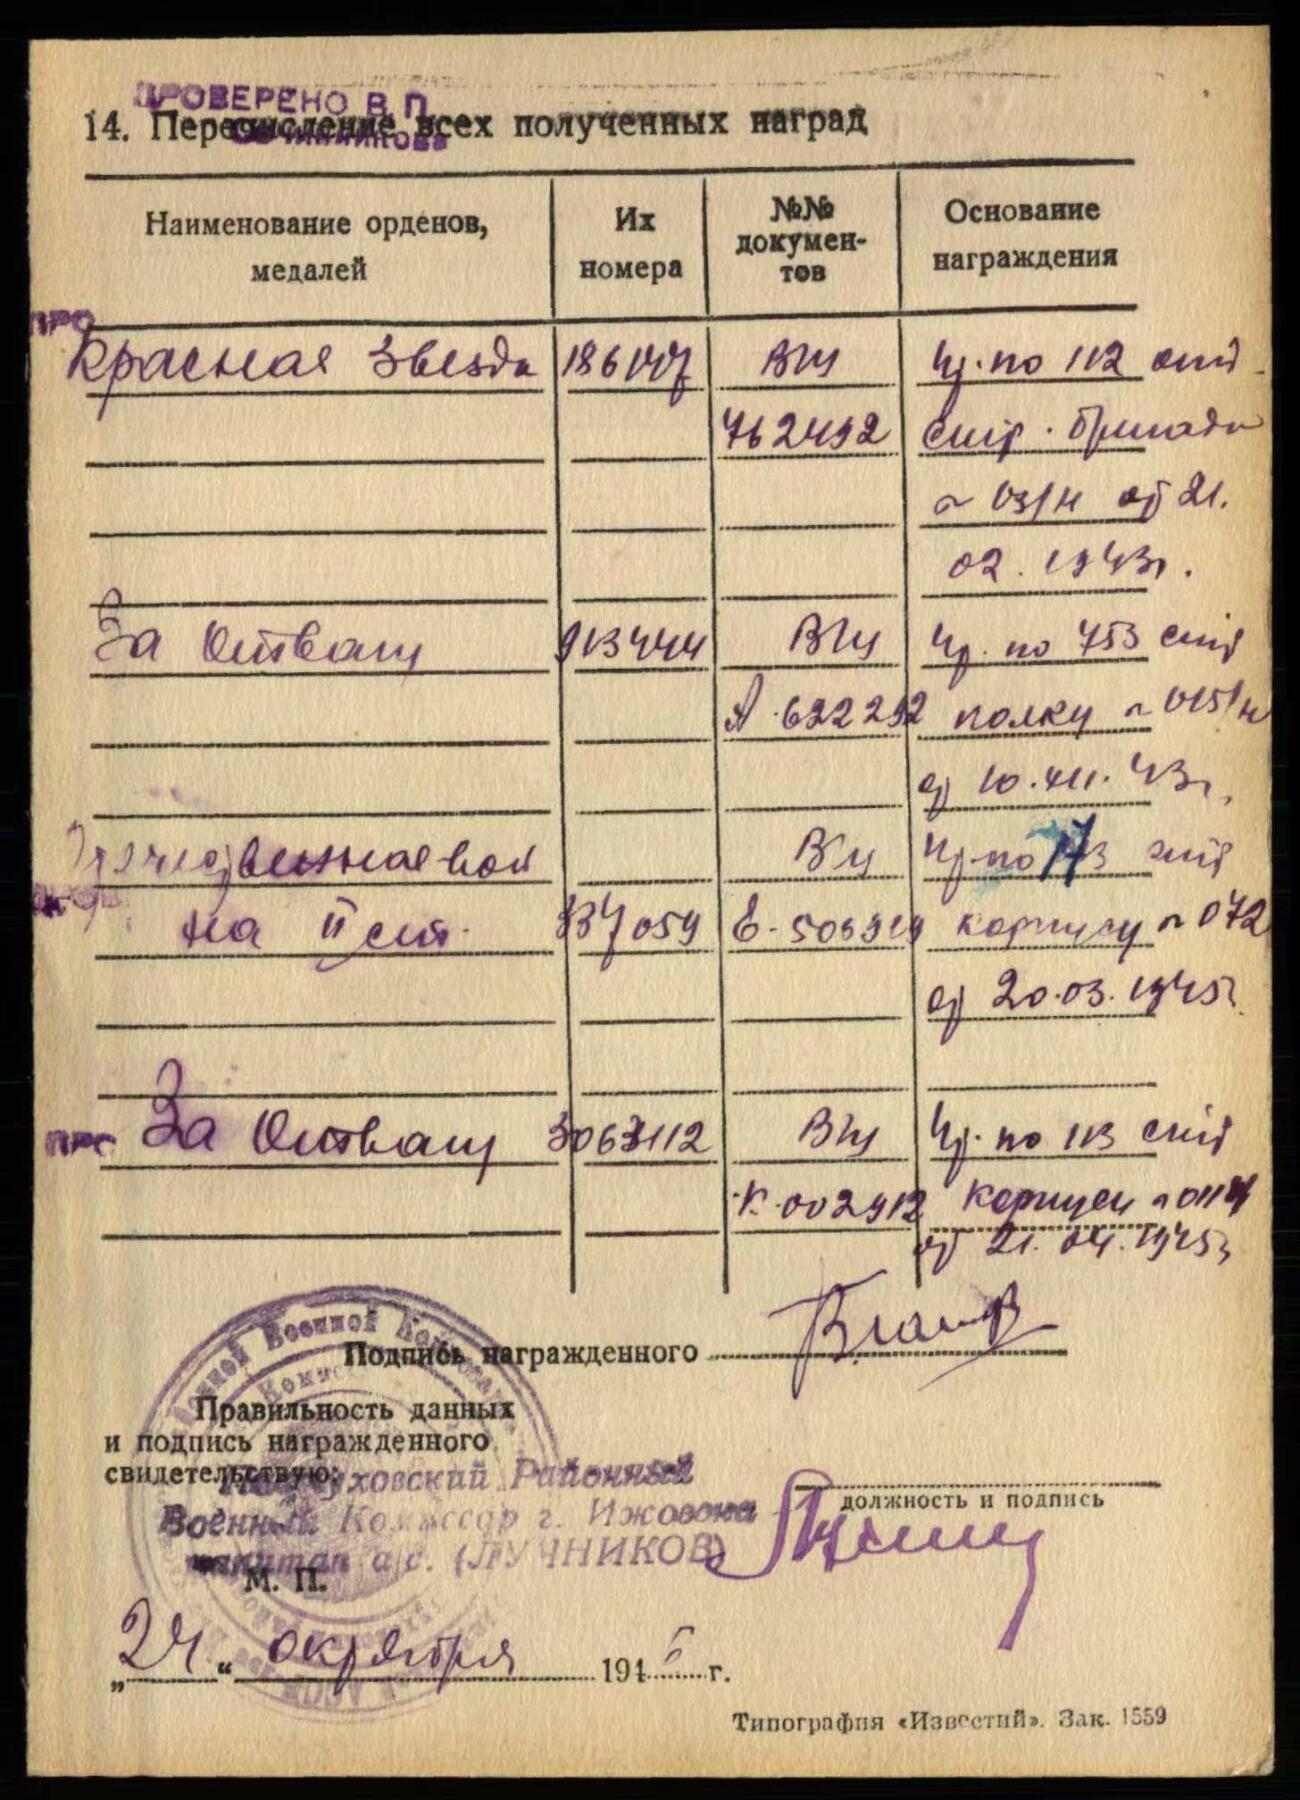 ПРОВЕРЕНО В.П.
14. Перечисление всех полученных наград
Наименование орденов, медалей
Их номера
№№ документов
Основание награждения
ПРО
Красная Звезда 186147 ВКЦ Пр. по 112 отд
762492 стр. бригады
№ 03/н от 21.
02. 1943г.
За Отвагу 913444 ВКЦ Пр. по 753 стр
А. 622292 полку № 015/н
от 10.XII. 43г.
Отечественная вой ВКЦ Пр. по 113 стр
на II ст. 337059 Е-506929 корпусу № 072
от 20.03. 1945г.
ПРО За Отвагу 3063112 ВКЦ Пр. по 113 стр
К. 002912
от 21. 04. 1945г
Подпись награжденного
Правильность данных
и подпись награжденного
свидетельствую:
Районный
Военный Комиссар г.
капитан а/с. (ЛУЧНИКОВ)
должность и подпись
М. П.
„24“ октября 194 г.
Типография «Известий». Зак. 1559